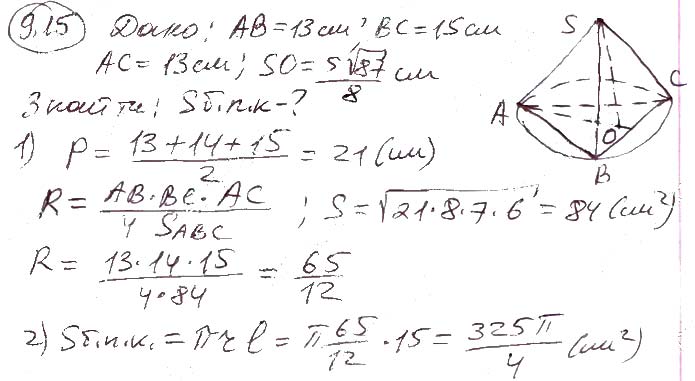 9.15 Дано: AB=13см, BC=15см
AC=13см; SO=5√87/8 см
Знайти: Sб.п.к-?
1) p = (13+14+15)/2 = 21 (см)
R = AB·BC·AC/4 S_ABC ; S=√21·8·7·6 = 84 (см²)
R = 13·14·15/4·84 = 65/12
2) Sб.п.к. = πrl = π 65/12 · 15 = 325π/4 (см²)
S
A
C
O
B